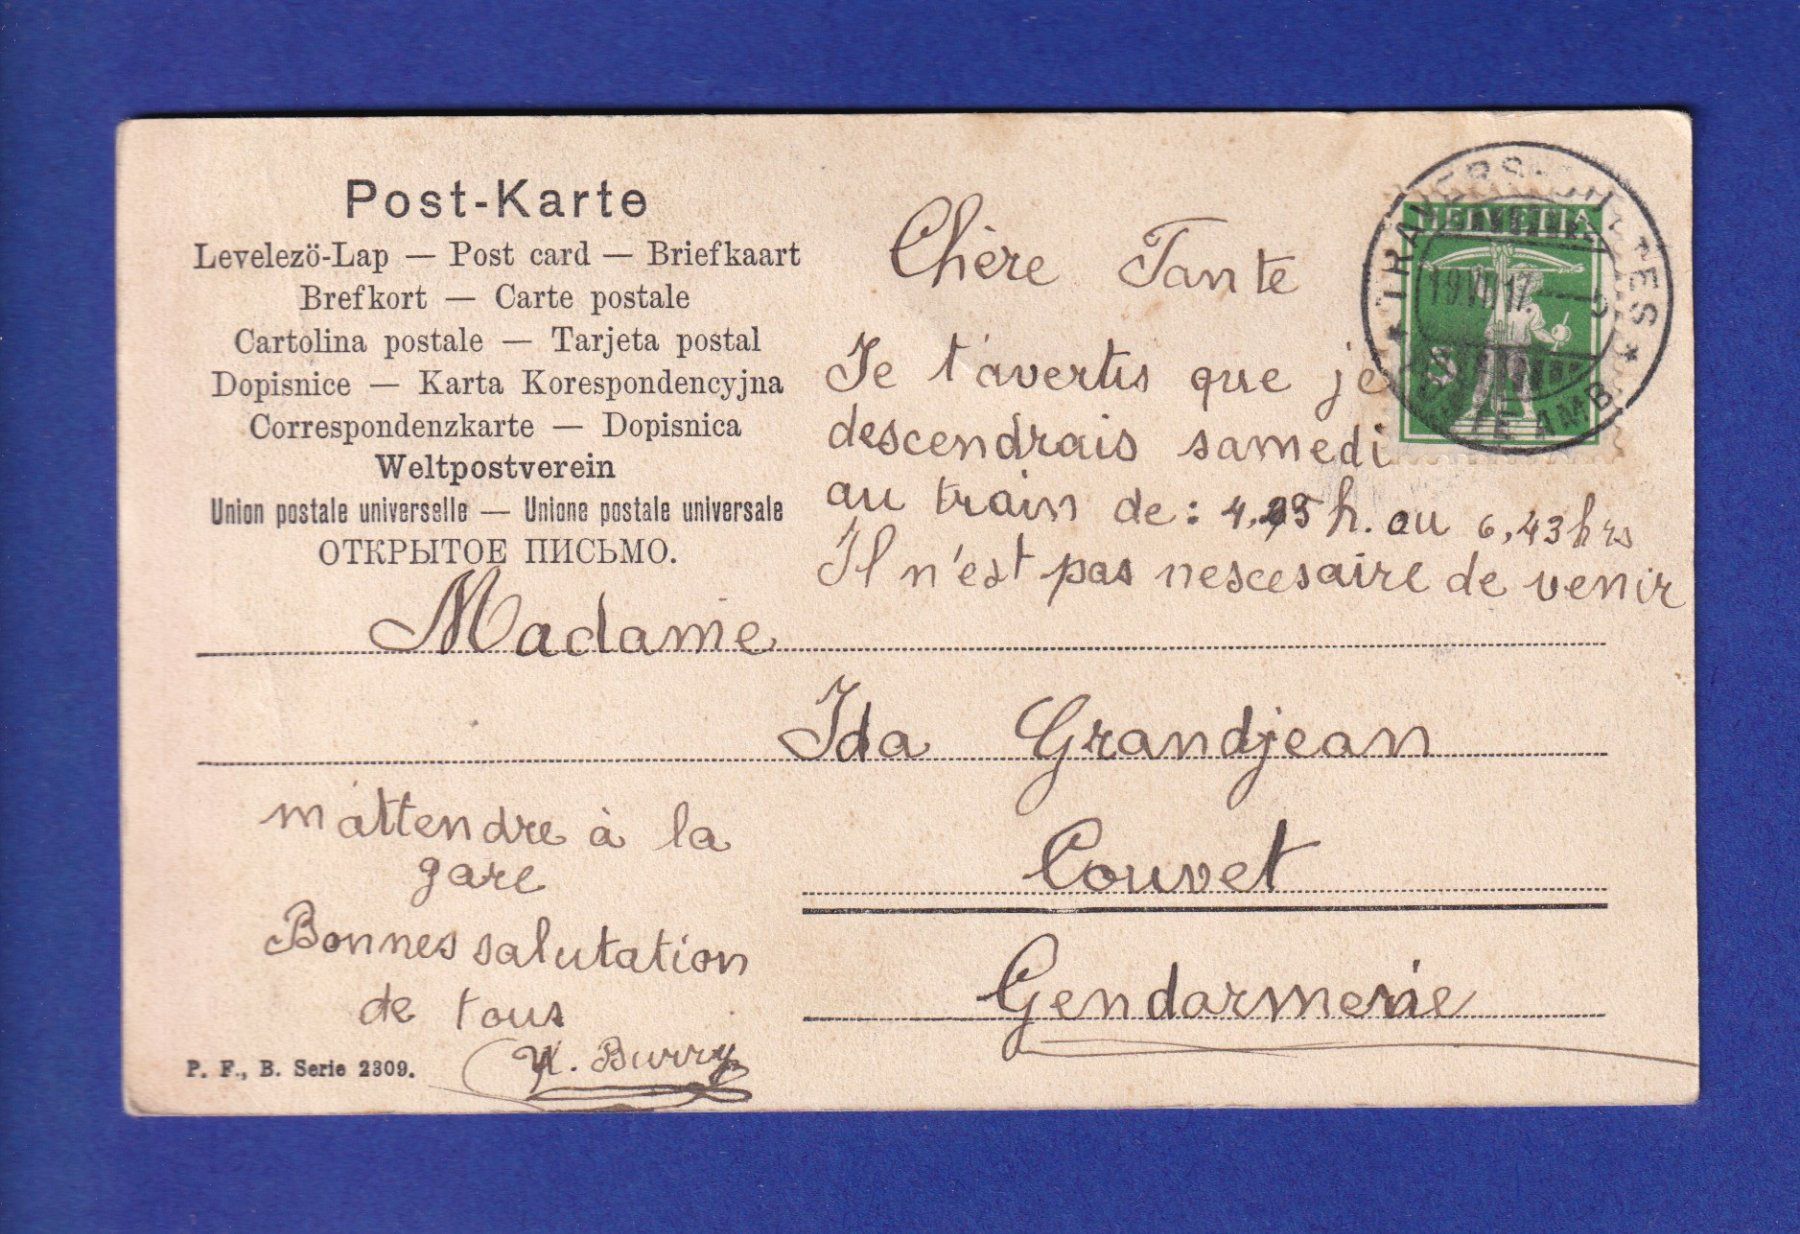 Post-Karte
Levelezö-Lap — Post card — Briefkaart
Brefkort — Carte postale
Cartolina postale — Tarjeta postal
Dopisnice — Karta Korespondencyjna
Correspondenzkarte — Dopisnica
Weltpostverein
Union postale universelle — Unione postale universale
ОТКРЫТОЕ ПИСЬМО.
Chère Tante
Je t'avertis que je
descendrais samedi
au train de: h. au 6,43 hrs
Il n'est pas nescesaire de venir
m'attendre à la
gare
Bonnes salutation
de tous
Burry
Madame
Ida Grandjean
Couvet
Gendarmerie
P. F., B. Serie 2309.
HELVETIA
5
TRAVERS
AMB